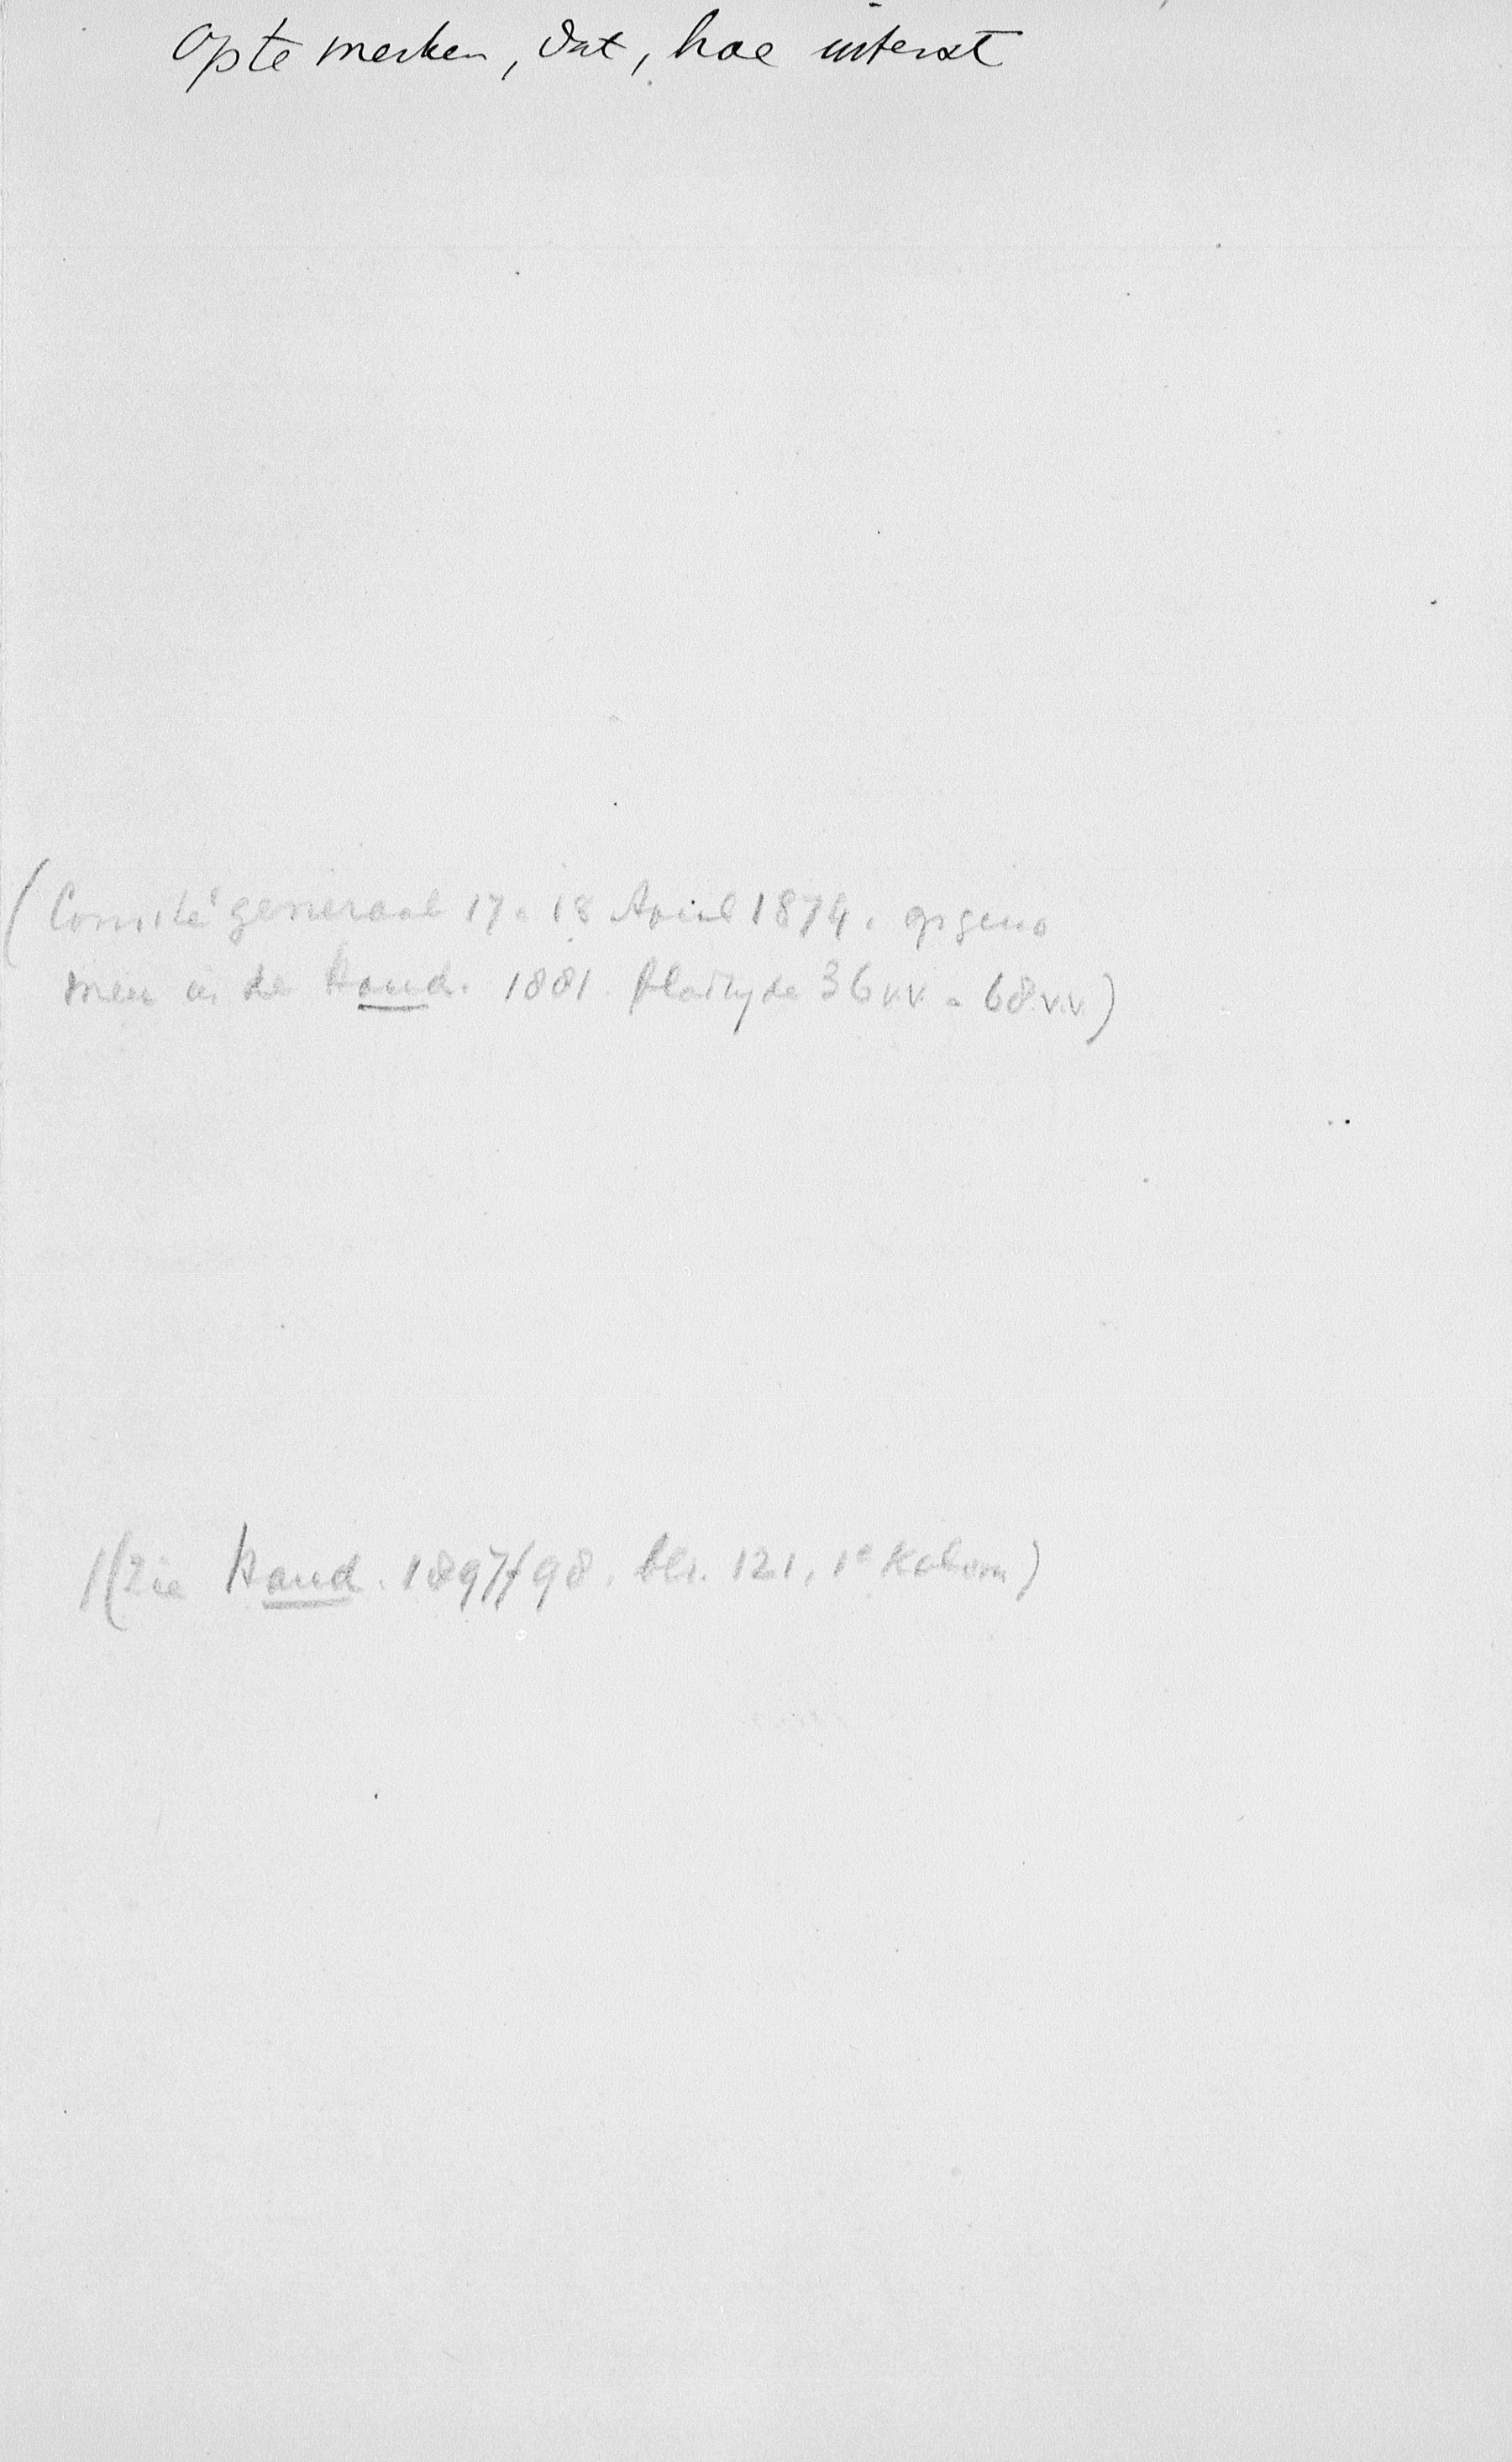 op te merken, dat, hoe uiterst
(Comité generaal 17 & 18 April 1874. opgeno
men in de Hand. 1881. bladzijde 36 v.v. & 68 v.v.)
(Zie Hand. 1897/98. blz. 121, 1e Kolom)